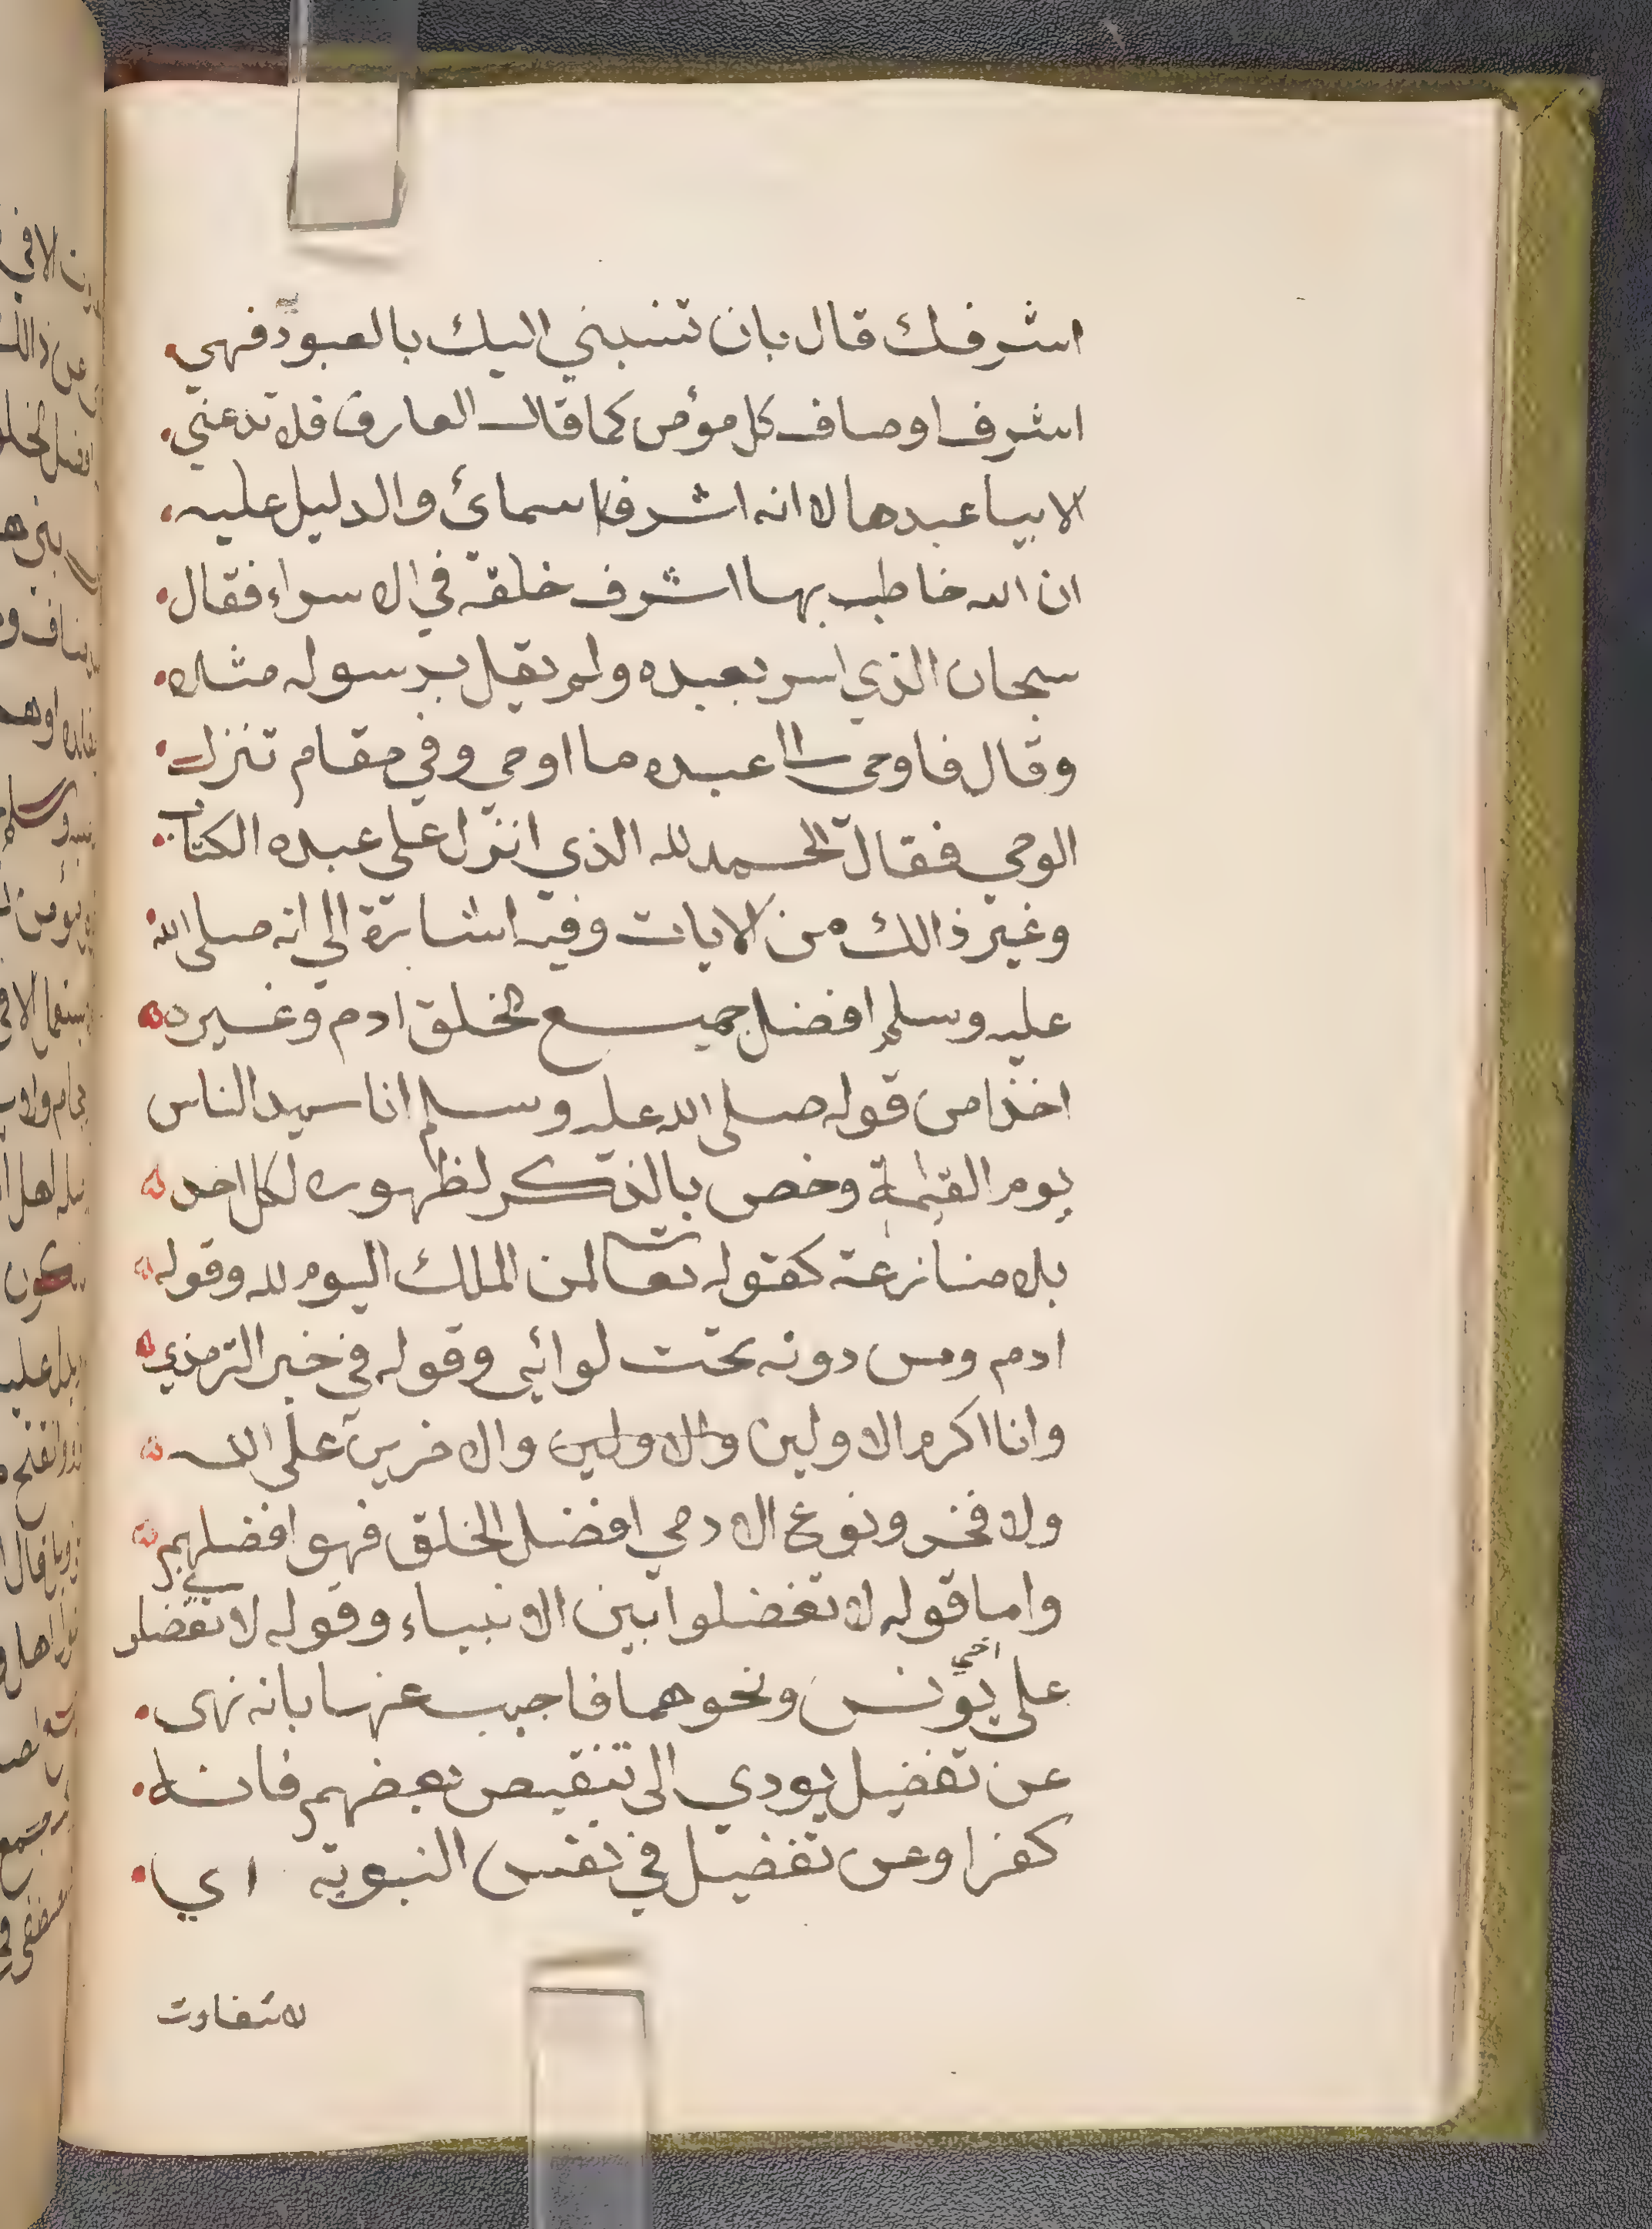 اشرفك قال بان تنسبني اليك بالعبودية فهي
اشرف اوصاف كل مؤمن كما قال العارف فلا تدعني
الا بيا عبدها لا انه اشرف اسمائ والدليل عليه
ان الله خاطب بها اشرف خلقة في الا سراء فقال
سبحان الذي اسر بعبده ولم يقل برسوله مثلا
وقال فاوحى الى عبده ما اوحى وفي مقام تنزل
الوحي فقال الحمد لله الذي انزل على عبده الكتاب
وغير ذالك من الايات وفيه اشارة الي انه صلى الله
عليه وسلم افضل جميع الخلق ادم وغيره
اخذا من قوله صلى الله عليه وسلم انا سيد الناس
يوم القيمة وخص بالذكر لظهوره لكل احد
بلا منازعة كقوله تعالى لمن الملك اليوم لله وقوله
ادم ومن دونه تحت لوائي وقوله في خبر الترمذي
وانا اكرم الاولين والاولين والاخرين على الله
ولا فخر ونوع الادمي افضل الخلق فهو افضلهم
واما قوله لا تفضلوا بين الانبياء وقوله لا تفضلوني
على اخي يونس ونحوهما فاجيب عنها بانه نهى
عن تفضيل يودي الى تنقيص بعضهم فانه
كفرا وعن تفضيل في نفس النبوية اي
لا تتفاوت